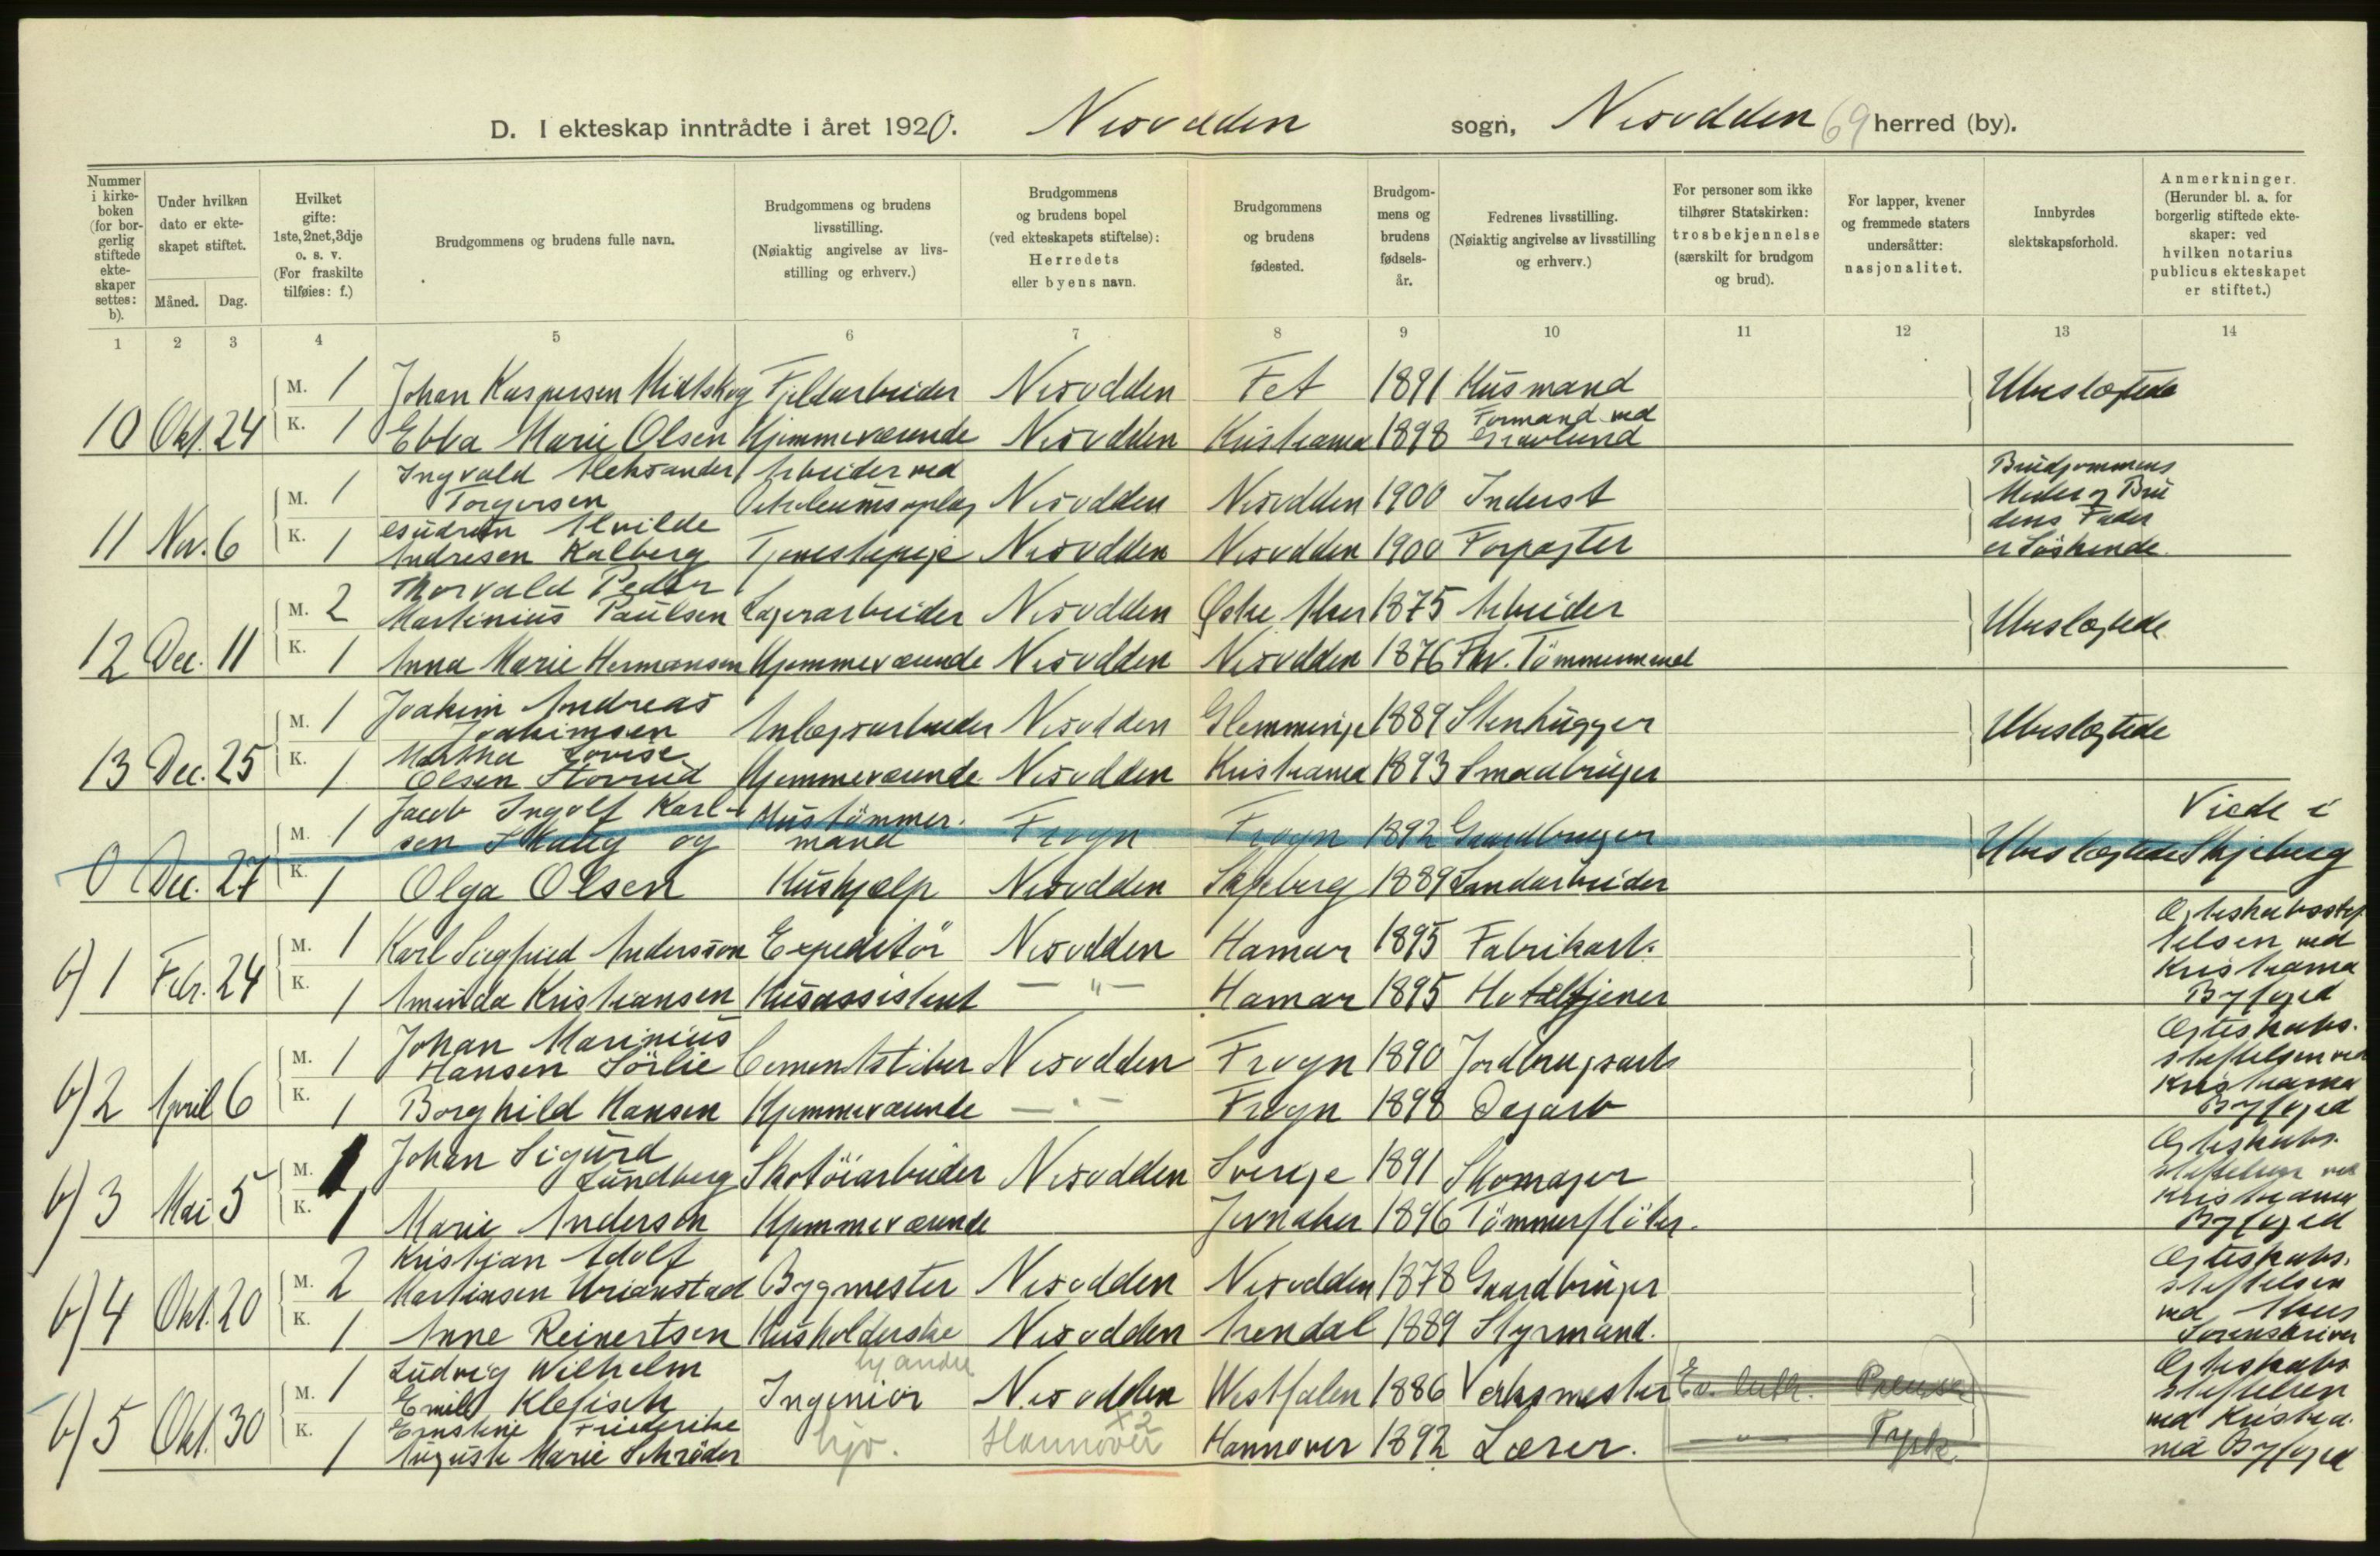 D. I ekteskap inntrådte i året 1920. Nesodden sogn, Nesodden 69 herred (by).
Nummer i kirke-boken (for bor-gerlig stiftede ekte-skaper settes: b).
Under hvilken dato er ekte-skapet stiftet.
Måned. Dag.
Hvilket gifte: 1ste, 2net, 3dje o. s. v. (For fraskilte tilføies: f.)
Brudgommens og brudens fulle navn.
Brudgommens og brudens livsstilling. (Nøiaktig angivelse av livs-stilling og erhverv.)
Brudgommens og brudens bopel (ved ekteskapets stiftelse): Herredets eller byens navn.
Brudgommens og brudens fødested.
Brudgom-mens og brudens fødsels-år.
Fedrenes livsstilling. (Nøiaktig angivelse av livsstilling og erhverv.)
For personer som ikke tilhører Statskirken: trosbekjennelse (særskilt for brudgom og brud).
For lapper, kvener og fremmede staters undersåtter: nasjonalitet.
Innbyrdes slektskapsforhold.
Anmerkninger. (Herunder bl. a. for borgerlig stiftede ekte-skaper: ved hvilken notarius publicus ekteskapet er stiftet.)
1 2 3 4 5 6 7 8 9 10 11 12 13 14
M. 1 Johan Kaspersen Midtskog Fjeldarbeider Nesodden Fet 1891 Husmand Ubeslægtede
10 Okt. 24 K. 1 Ebba Marie Olsen Hjemmeværende Nesodden Kristiania 1898 Formand ved Gravlund
M. 1 Ingvald Aleksander Torgersen Arbeider ved Petroleumsoplag Nesodden Nesodden 1900 Inderst Brudgommens Moder og Brudens Fader er Söskende.
11 Nov. 6 K. 1 Gudrun Alvilde Andresen Kalberg Tjenestepige Nesodden Nesodden 1900 Forpagter
M. 2 Thorvald Peder Martinius Paulsen Lagerarbeider Nesodden Østre Aker 1875 Arbeider Ubeslægtede
12 Dec. 11 K. 1 Anna Marie Hermansen Hjemmeværende Nesodden Nesodden 1876 Fhv. Tömmermand
M. 1 Joakim Andreas Joakimsen Anlægsarbeider Nesodden Glemminge 1889 Stenhugger Ubeslægtede
13 Dec. 25 K. 1 Martha Lovise Olsen Stovrud Hjemmeværende Nesodden Kristiania 1893 Smaabruger
M. 1 Jacob Ingolf Karl-sen Skaug og Hustömmer-mand Frogn Frogn 1892 Gaardbruger Ubeslægtede Viede i Skjeberg
0 Dec. 27 K. 1 Olga Olsen Hushjælp Nesodden Skjeberg 1889 Landarbeider
M. 1 Karl Siegfried Andersson Expeditör Nesodden Hamar 1895 Fabrikarb. Ægteskabsstiftelsen ved Kristiania Byfoged
b) 1 Febr. 24 K. 1 Aminda Kristiansen Husassistent — " — Hamar 1895 Hoteltjener
M. 1 Johan Marinius Hansen Sörlie Cementstöber Nesodden Frogn 1890 Jordbrugsarb Ægteskabs-stiftelsen ved Kristiania Byfoged
b) 2 April 6 K. 1 Borghild Hansen Hjemmeværende — " — Frogn 1898 Dagarb
M. 1 Johan Sigurd Lundberg Skotöiarbeider Nesodden Sverige 1891 Skomager Ægteskabs-stiftelsen ved Kristiania Byfoged
b) 3 Mai 5 K. 1 Marie Anderson Hjemmeværende Jevnaker 1896 Tömmerflöter.
M. 2 Kristian Adolf Martinsen Uranstad Bygmester Nesodden Nesodden 1878 Gaardbruger Ægteskabs-stiftelsen ved Akers Sorenskriver
b) 4 Okt. 20 K. 1 Anne Reinertsen Husholderske Nesodden Arendal 1889 Styrmand.
hj andre
M. 1 Ludvig Wilhelm Emil Klefisch Ingeniör Nesodden Westfalen 1886 Verksmester Ev. luth. Preusser Ægteskabs stiftelsen ved Kristiania ved Byfoged
b) 5 Okt. 30 K. 1 Ernstine Friederike Auguste Marie Schröder hjv. Hannover x2 Hannover 1892 Lærer. — " — Tysk.